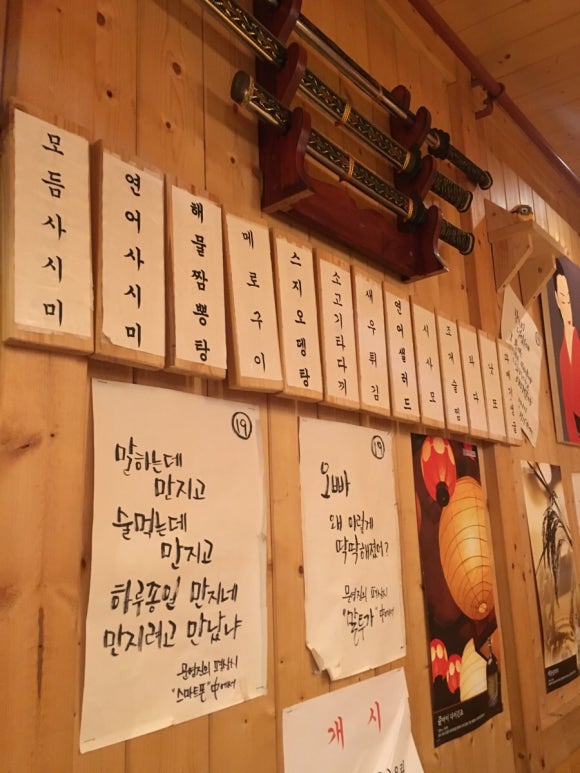 모듬사시미
연어사시미
해물짬뽕탕
메로구이
스지오뎅탕
소고기타다끼
새우튀김
연어샐러드
시사모
조개술찜
19
말하는데
만지고
술먹는데
만지고
하루종일 만지네
만지려고 만났냐
문영진의 뻔살시
"스마트폰" 中에서
19
오빠
왜 이렇게
딱딱해졌어?
"말투가" 中에서
개시